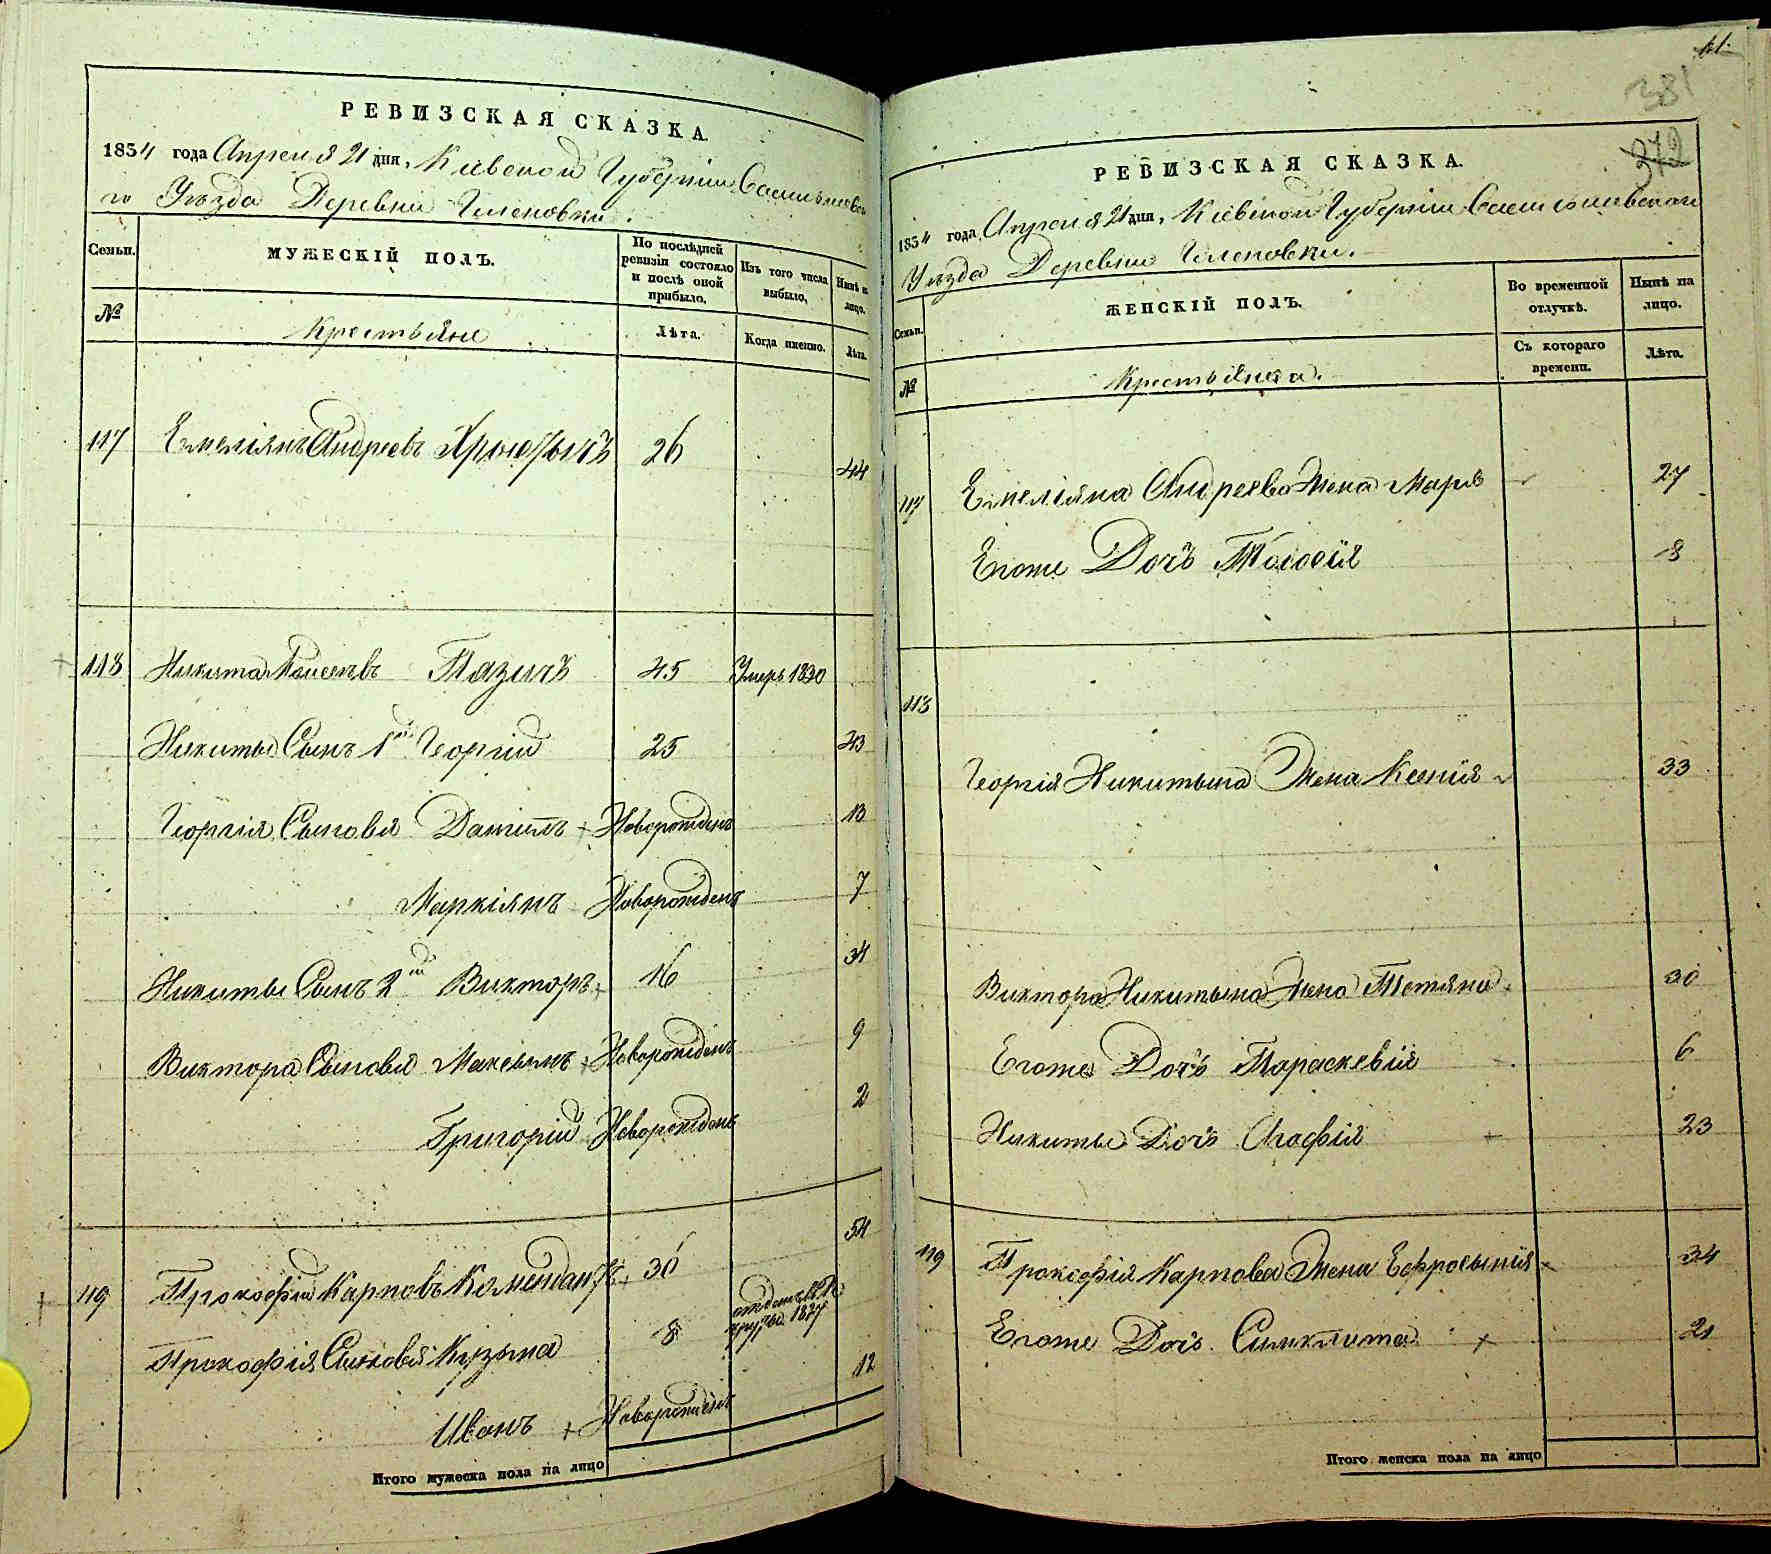 РЕВИЗСКАЯ СКАЗКА.
1854 года Апреля 21 дня, Кіевской Губерніи Васильковска
го Уѣзда Деревни Еленовки.
Семьи. МУЖЕСКІЙ ПОЛЪ. По послѣдней ревизіи состояло и послѣ оной прибыло. Изъ того числа выбыло, Нынѣ на лицо.
№ Крестьяне Лѣта. Когда именно. Лѣта.
117 Емеліянъ Андреевъ 26 44
118 Никита Моисеевъ 45 Умеръ 1850
Никиты Сынъ 1й Георгій 25 43
Георгія Сыновья Даніилъ + Новорожденъ 13
Маркіянъ Новорожденъ 7
Никиты Сынъ 2й Викторъ + 16 34
Виктора Сыновья Максымъ + Новорожденъ 9
Григорій Новорожденъ 2
119 Прокофій Карповъ Комендантъ + 36 54
Прокофія Сыновья Кузьма 8 отданъ въ рекруты 1847
Иванъ + Новорожденъ 12
Итого мужеска пола на лицо
41.
381
372
РЕВИЗСКАЯ СКАЗКА.
1854 года Апреля 21 дня, Кіевской Губерніи Васильковскаго
Уѣзда Деревни Еленовки.
Семьи. ЖЕНСКІЙ ПОЛЪ. Во временной отлучкѣ. Нынѣ на лицо.
№ Крестьянка. Съ котораго времени. Лѣта.
117 Емеліяна Андреева Жена Марья 27
Егоже Дочь Таисія 8
118
Георгія Никитына Жена Ксенія 33
Виктора Никитына Жена Тетяна 30
Егоже Дочь Параскевія 6
Никиты Дочь Агафія + 23
119 Прокофія Карпова Жена Ефросынія 34
Егоже Дочь Синклита + 21
Итого женска пола на лицо